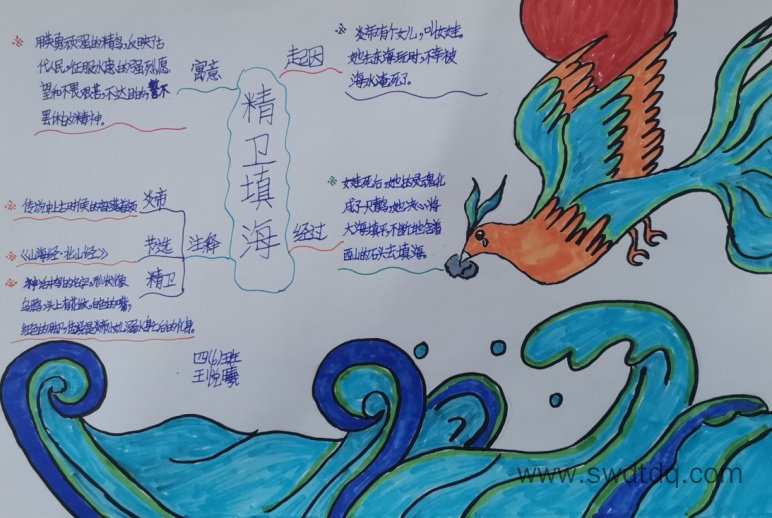 精卫填海
寓意
用英勇顽强的精鸟,反映了古
代人民,征服水患的强烈愿
望和不畏艰苦,不达目的,誓不
罢休的精神。
起因
炎帝有个女儿,叫女娃。
她去东海玩时,不幸被
海水淹死了。
经过
女娃死后,她的灵魂化
成了一只鸟,她决心将
大海填平,不断地含着
西山的石头去填海。
注释
炎帝
传说中上古时候的
《山海经·北山经》
精卫
神话中鸟的名字,形状像
乌鸦,头上有花纹,白色的嘴,
红色的脚,传说是炎帝小女儿溺水身亡后的化身。
四(6)班
王悦曦
www.swdtdq.com